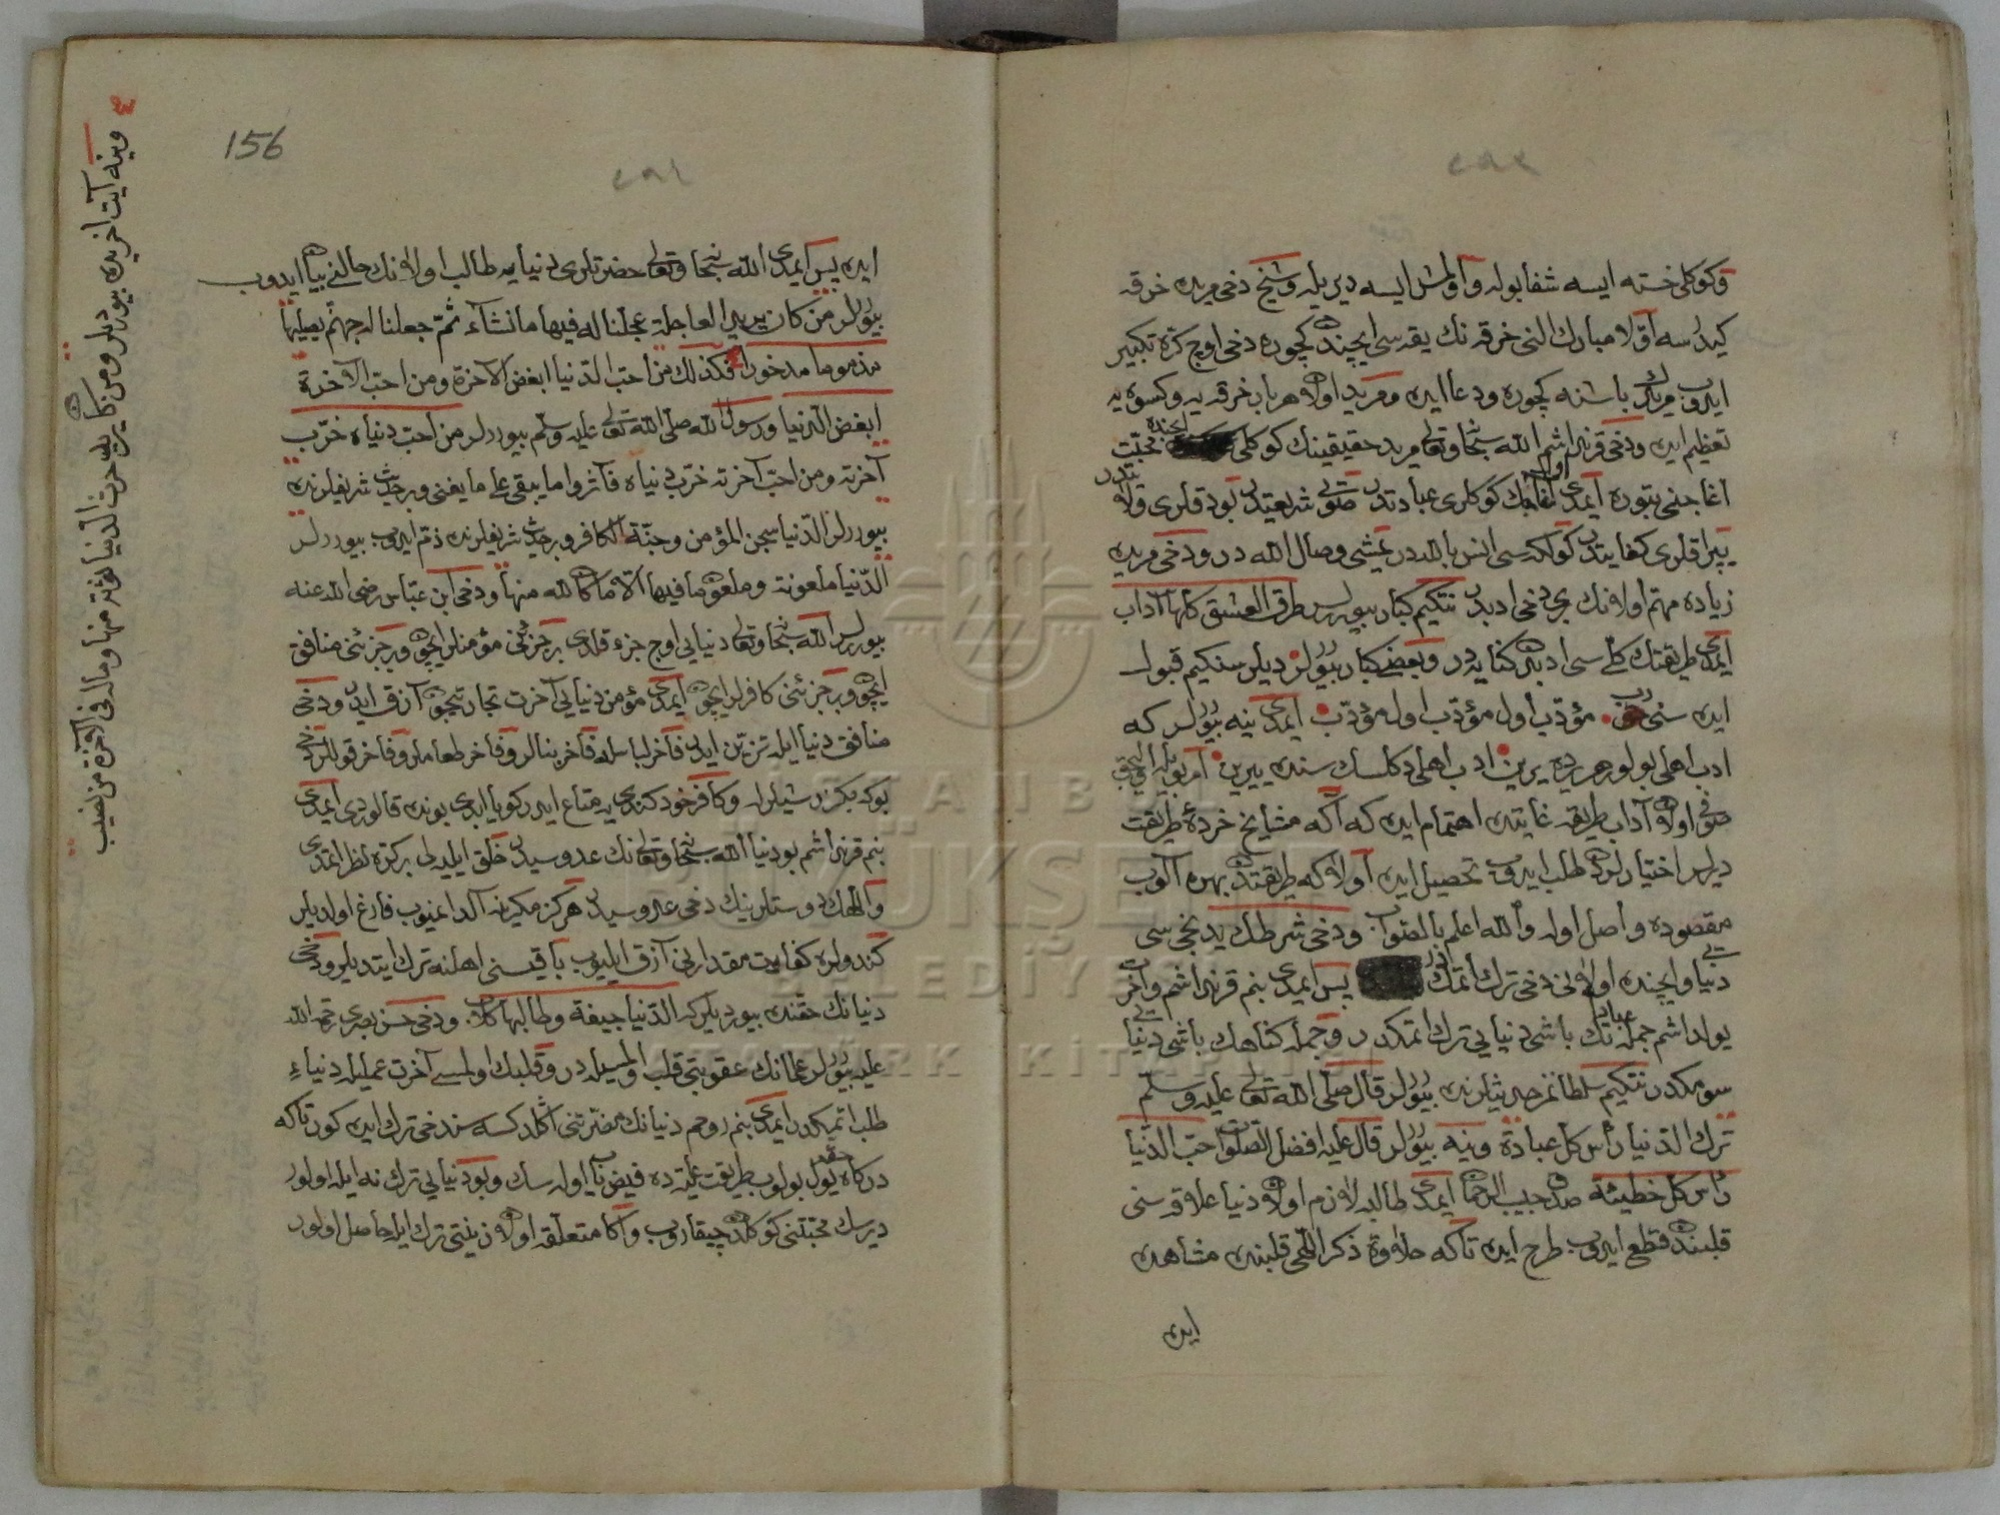 وكوكلى خسته ايسه شفا بوله واولمش ايسه ديريله وشيخ دخى مريده خرقه
كيدرسه اولا مبارك النى خرقه نك يقه سى ايچندن كچوره دخى اوچ كره تكبير
ايدوب مريدك باشنه كچوره ودعا ايده ومريد اولان هر بار خرقه يه وكسوه يه
تعظيم ايده ودخى قرنداشم الله سبحانه وتعالى مريد حقيقينك كوكلى ايچنده محبّت
اغاجنى بتوره ايمدى اول اغاجك كوكلرى عبادتدن صويى شريعتدن بوداقلرى ولايتدن
يپراقلرى كفايتدن كولكه سى انس بالله در يمشى وصال الله در ودخى مريده
زياده مهمّ اولانك برى دخى ادبدر نتكيم كبار بيوررلر طرق العشق كلها آداب
ايمدى طريقتك كلّى سى ادبدن كنايه در وبعض كبار بيوررلر ديلرسنكيم قبول
ايده سنى رب مؤدّب اول مؤدّب اول مؤدّب ايمدى ينه بيوررلر كه
ادب اهلى بولور هر يرده يرين ادب اهلى دكلسك سنده ييرين
صوفى اولان آداب طريقه غايتده اهتمام ايده كه اكه مشايخ خردهٔ طريقت
ديرلر اختيارلردن طلب ايدوب تحصيل ايده اولا كه طريقتدن بهره آلوب
مقصوده واصل اوله والله اعلم بالصواب ودخى شرطك يدنجى سى
دنيا وايچنده اولانى دخى ترك اتمكدر پس ايمدى بنم قرنداشم وآخرت
يولداشم جمله عبادتك باشى دنيايى ترك اتمكدر وجمله كناهك باشى دنيايى
سومكدر نتكيم سلطانمز حديثلرنده بيوررلر قال صلّى الله تعالى عليه وسلّم
ترك الدّنيا رأس كلّ عبادة وينه بيوررلر قال عليه افضل الصلوات حبّ الدّنيا
رأس كلّ خطيئة صدق حبيب الرحمن ايمدى طالبه لازم اولان دنيا علاقه سنى
قلبندن قطع ايدوب طرح ايده تاكه حلاوة ذكر اللّهى قلبنده مشاهده
ايده
156
٢٩٢
ايده پس ايمدى الله سبحانه وتعالى حضرتلرى دنيايه طالب اولانك حالنى بيان ايدوب
بيوررلر من كان يريد العاجلة عجّلنا له فيها ما نشآء ثمّ جعلنا له جهنّم يصليها
مذموما مدحورا فكذلك من احبّ الدّنيا ابغض الآخرة ومن احبّ الآخرة
ابغض الدّنيا ورسول الله صلّى الله تعالى عليه وسلّم بيوررلر من احبّ دنياه خرّب
آخرته ومن احبّ آخرته خرّب دنياه فآثروا ما يبقى على ما يفنى وبر حديث شريفلرنده
بيوررلر الدّنيا سجن المؤمن وجنّة الكافر وبر حديث شريفلرنده ذمّ ايدوب بيوررلر
الدّنيا ملعونة وملعون ما فيها الّا ما كان لله منها ودخى ابن عبّاس رضى الله عنه
بيوررلر الله سبحانه وتعالى دنيايى اوچ جزء قلدى بر جزئنى مؤمنلر ايچون وبر جزئنى منافق
ايچون وبر جزئنى كافرلر ايچون ايمدى مؤمن دنيايى آخرت تجارتيچون آزق ايدر ودخى
منافق دنيا ايله تزيّن ايدر فاخر لباسلر وفاخر بنالر وفاخر طعاملر وفاخر قوللر دخى
بوكه بكزر شيلرله وكافر خود كندى يه متاع ايدر كويا ابدى بونده قالوردى ايمدى
بنم قرنداشم بو دنيا الله سبحانه وتعالى نك عدوسيدر خلق ايليه لى بر كره نظر اتمدى
واللهك دوستلرينك دخى عدوسيدر هركز مكرينه آلدانميوب فارغ اولديلر
كندولره كفايت مقدارنى آزق ايليوب باقيسنى اهلنه ترك ايتديلر ودخى
دنيانك حقنده بيورديلر كه الدّنيا جيفة وطالبها كلاب ودخى حسن بصرى رحمة الله
عليه بيوررلر علمانك عقوبتى قلب اولمسيله در وقلبك اولمسى آخرت عمليله دنياءِ
طلب اتمكدر ايمدى بنم روحم دنيانك مضرّتنى اكلدكسه سندخى ترك ايده كور تا كه
دركاه حقه يول بولوب طريقت عليّه ده فيضياب اوله سك وبو دنيايى ترك نه ايله اولور
ديرسك محبّتنى كوكلدن چيقاروب واكا متعلّق اولان زينتى ترك ايله حاصل اولور
وينه آيت آخرنده بيورديلر ومن كان يريد حرث الدّنيا نؤته منها وماله فى الآخرة من نصيب